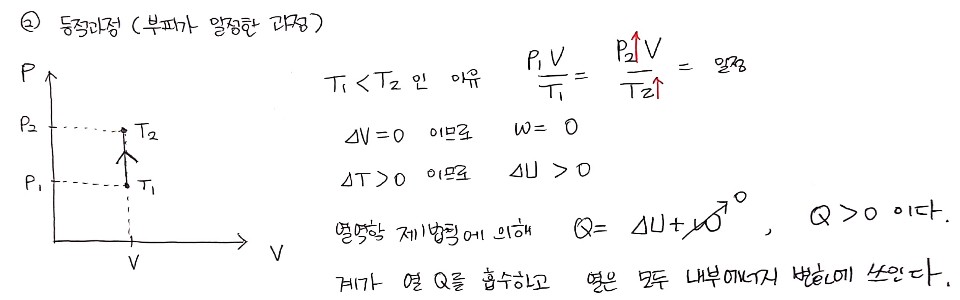 ② 등적과정 (부피가 일정한 과정)
P
P₂
P₁
T₂
T₁
V
V
T₁ < T₂ 인 이유 P₁V/T₁ = P₂↑V/T₂↑ = 일정
ΔV=0 이므로 W= 0
ΔT>0 이므로 ΔU > 0
열역학 제1법칙에 의해 Q= ΔU+W↗0 , Q>0 이다.
계가 열 Q를 흡수하고 열은 모두 내부에너지 변화에 쓰인다.